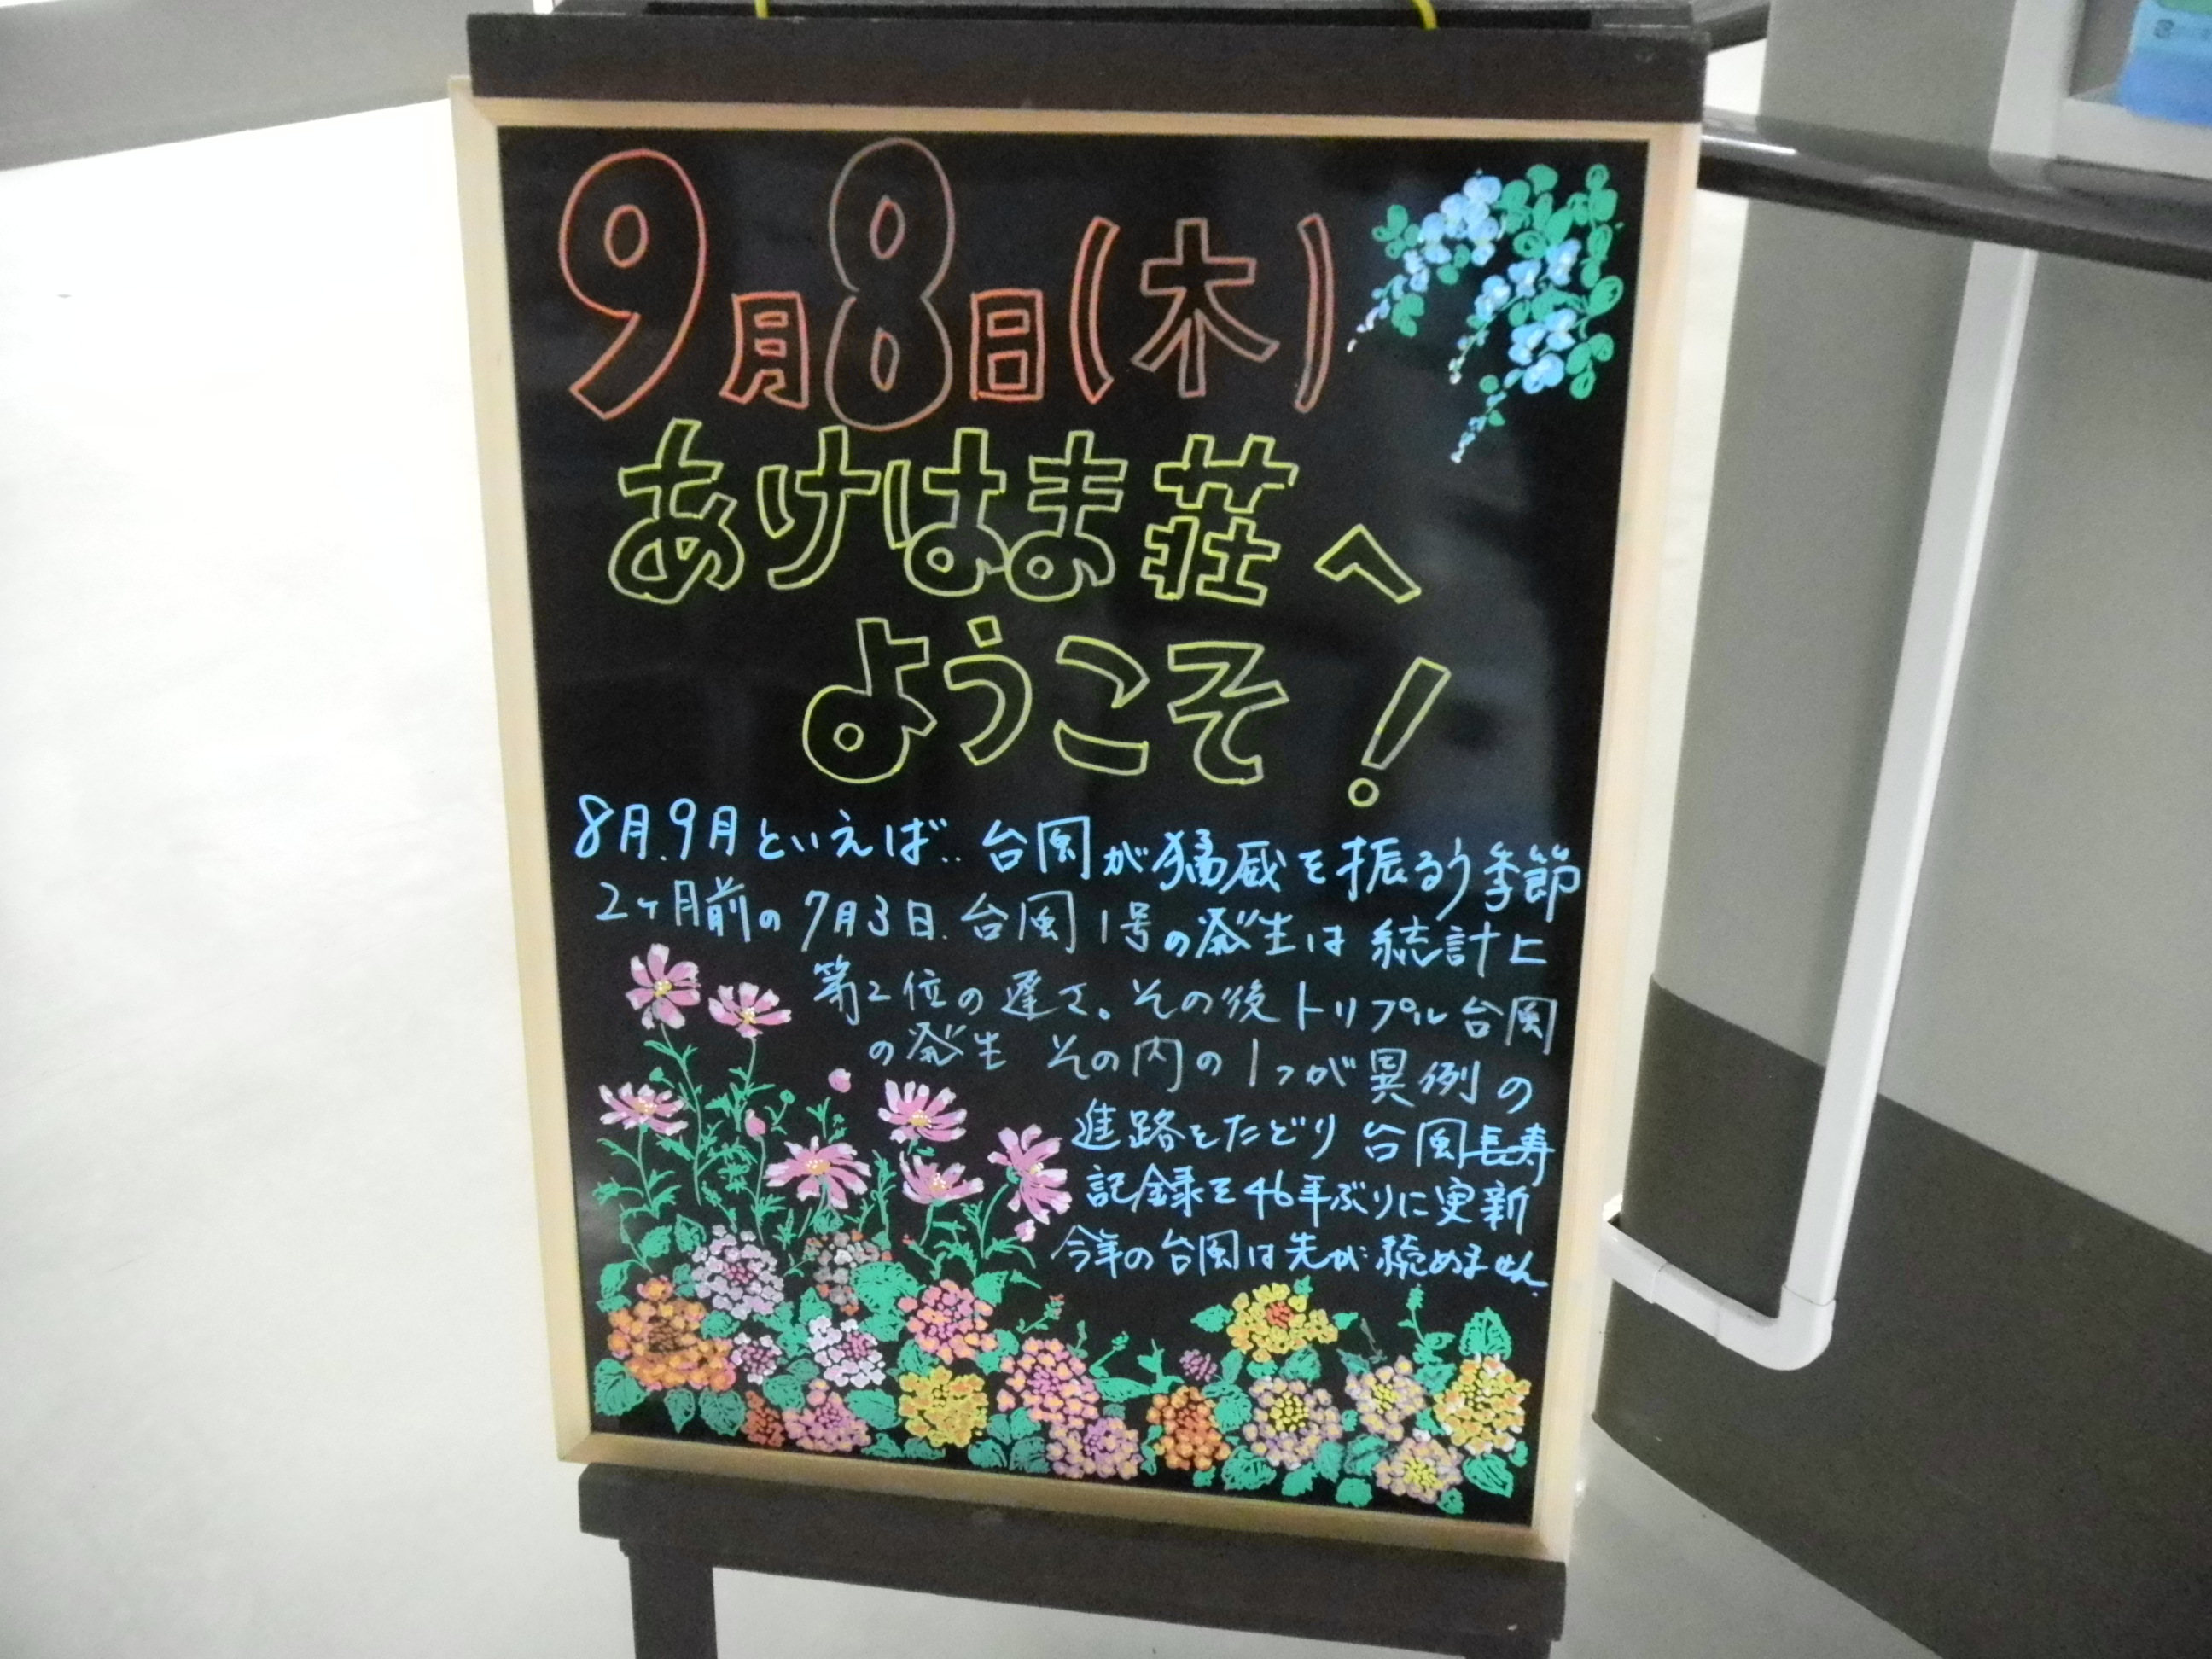 9月8日(木)
あけはま荘へ
ようこそ!
8月.9月といえば‥台風が猛威を振るう季節
2ヶ月前の7月3日.台風1号の発生は統計上
第2位の遅さ。その後トリプル台風
の発生 その内の1つが異例の
進路をたどり台風長寿
記録を46年ぶりに更新
今年の台風は先が読めません